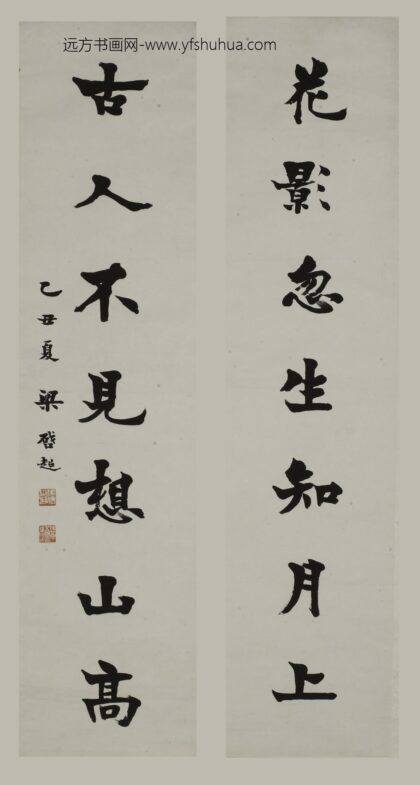 远方书画网-www.yfshuhua.com
花影忽生知月上
古人不見想山高
乙丑夏 梁啓超